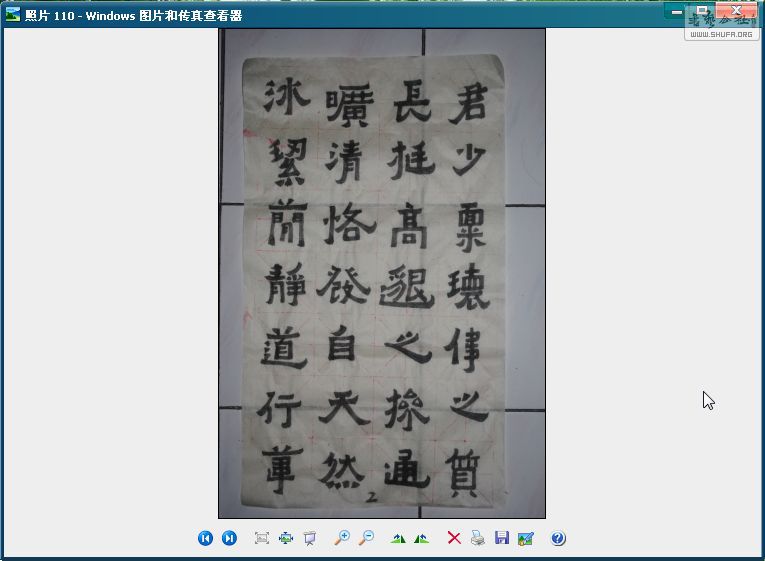 照片 110 - Windows 图片和传真查看器
书艺公社
WWW.SHUFA.ORG
君少稟瓌偉之質
長挺高邈之操通
曠清恪發自天然
冰絜蕳靜道行華
2